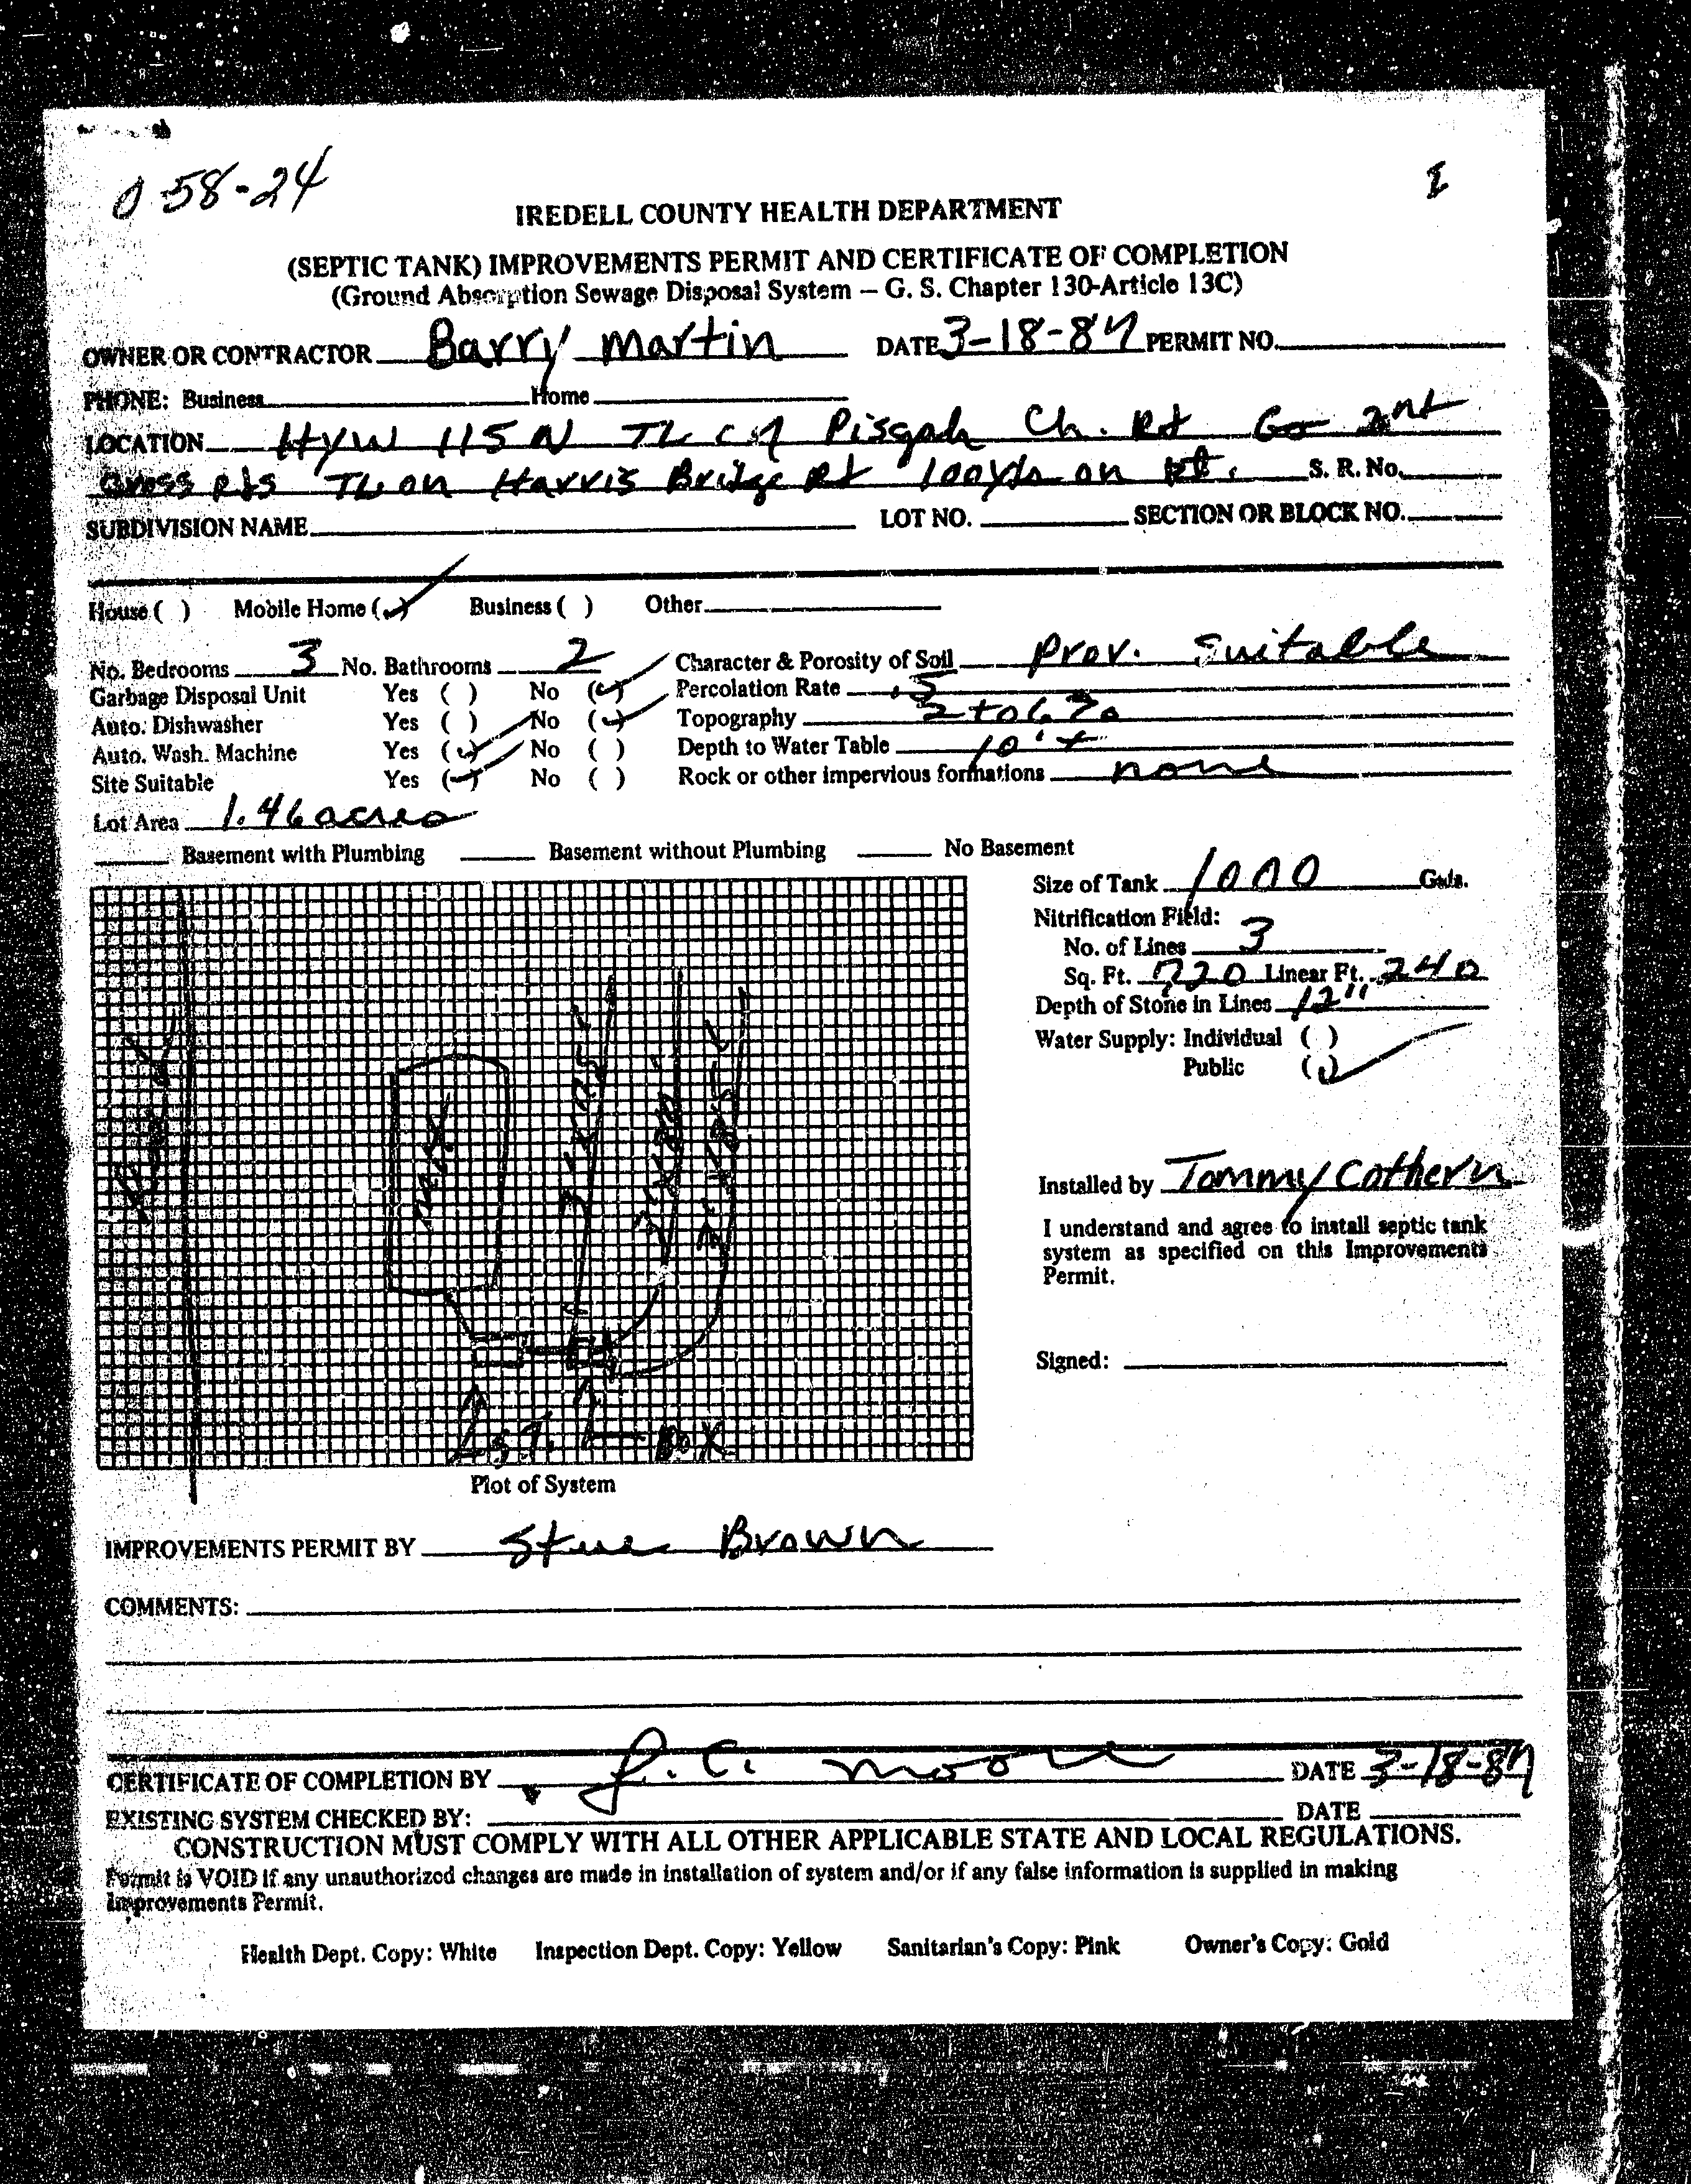 0 58-24
IREDELL COUNTY HEALTH DEPARTMENT
(SEPTIC TANK) IMPROVEMENTS PERMIT AND CERTIFICATE OF COMPLETION
(Ground Absorption Sewage Disposal System – G. S. Chapter 130-Article 13C)
OWNER OR CONTRACTOR Barry Martin DATE 3-18-87 PERMIT NO.
PHONE: Business Home
LOCATION Hyw 115 N TL Pisgah Ch. Rd Go 2nd
Cross Rds TL on Harris Bridge Rd 100 yds on Rt. S. R. No.
SUBDIVISION NAME LOT NO. SECTION OR BLOCK NO.
House ( ) Mobile Home (✓) Business ( ) Other
No. Bedrooms 3 No. Bathrooms 2 Character & Porosity of Soil Prov. Suitable
Garbage Disposal Unit Yes ( ) No (✓) Percolation Rate .5
Auto. Dishwasher Yes ( ) No (✓) Topography 2 to 6%
Auto. Wash. Machine Yes (✓) No ( ) Depth to Water Table 10'+
Site Suitable Yes (✓) No ( ) Rock or other impervious formations none
Lot Area 1.46 acres
Basement with Plumbing Basement without Plumbing No Basement
Size of Tank 1000 Gals.
Nitrification Field:
No. of Lines 3
Sq. Ft. 720 Linear Ft. 240
Depth of Stone in Lines 12"
Water Supply: Individual ( )
Public (✓)
Installed by Tommy Cothern
I understand and agree to install septic tank
system as specified on this Improvements
Permit.
Signed:
S.T. Box
Plot of System
IMPROVEMENTS PERMIT BY Steve Brown
COMMENTS:
CERTIFICATE OF COMPLETION BY J. C. Moore DATE 3-18-87
EXISTING SYSTEM CHECKED BY: DATE
CONSTRUCTION MUST COMPLY WITH ALL OTHER APPLICABLE STATE AND LOCAL REGULATIONS.
Permit is VOID if any unauthorized changes are made in installation of system and/or if any false information is supplied in making
Improvements Permit.
Health Dept. Copy: White Inspection Dept. Copy: Yellow Sanitarian's Copy: Pink Owner's Copy: Gold